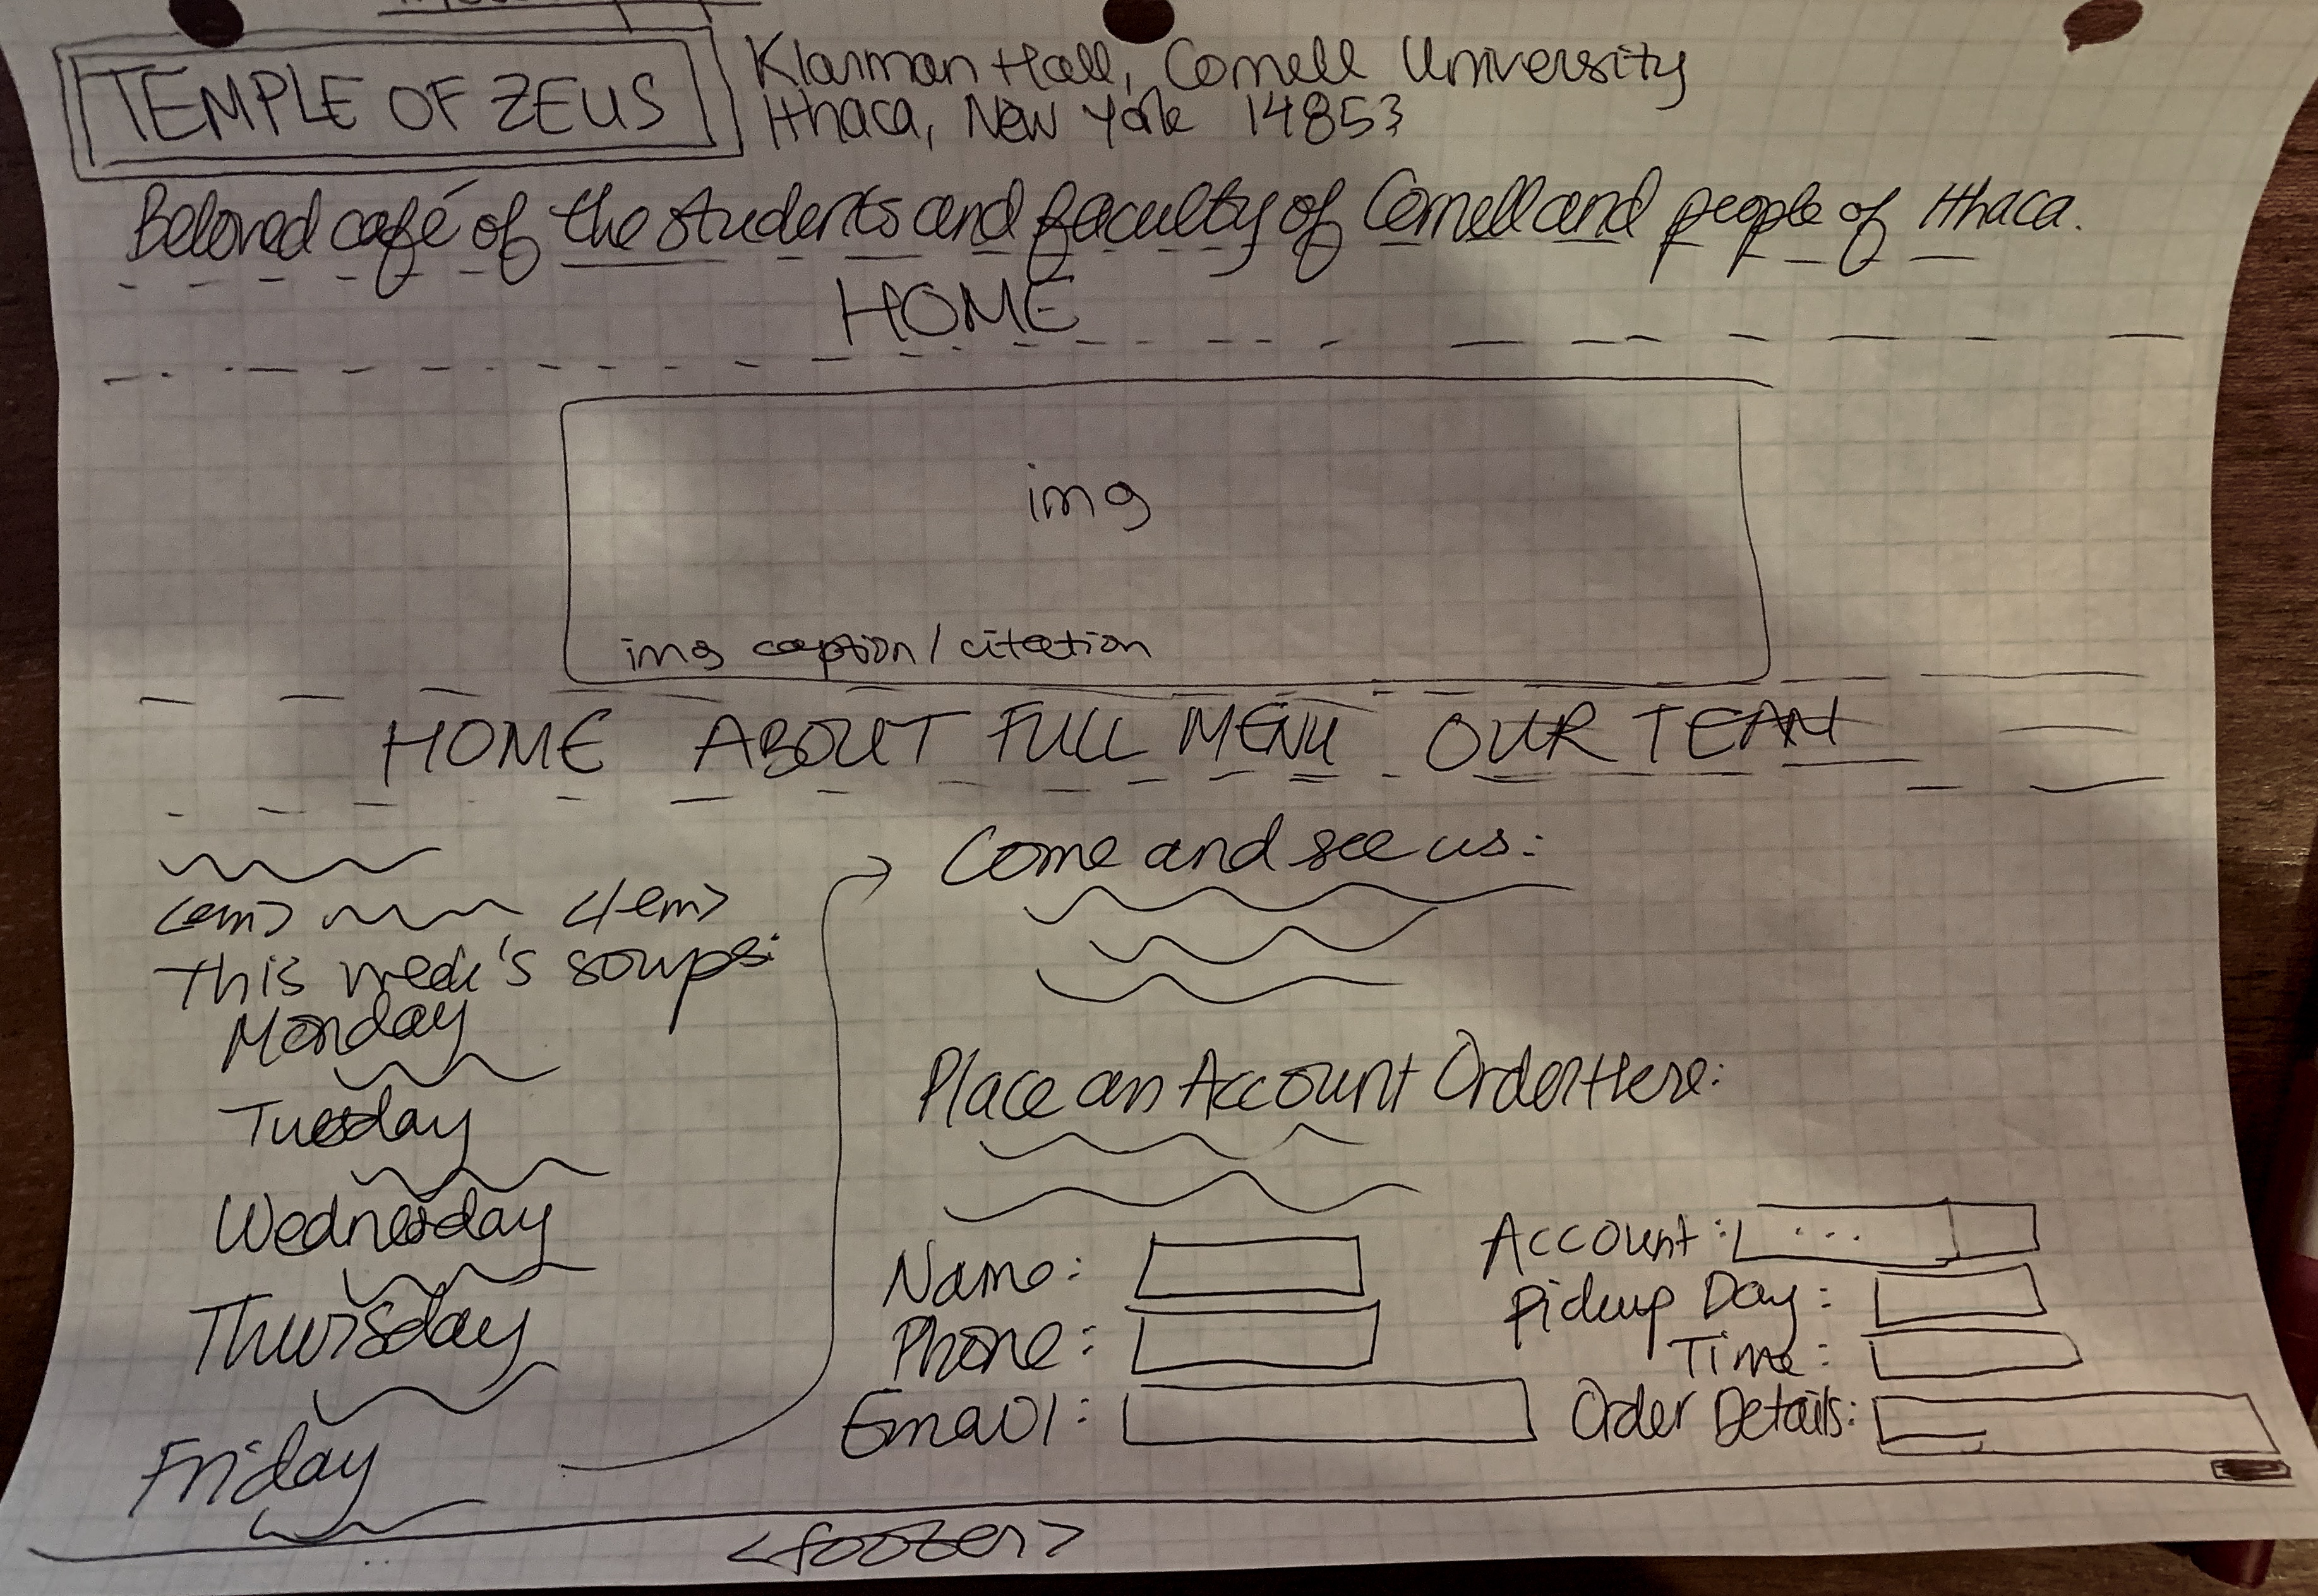 TEMPLE OF ZEUS
Klarman Hall, Cornell University
Ithaca, New York 14853
Beloved café of the students and faculty of Cornell and people of Ithaca.
HOME
img
img caption/citation
HOME ABOUT FULL MENU OUR TEAM
<em> </em>
This week's soups:
Monday
Tuesday
Wednesday
Thursday
Friday
Come and see us:
Place an Account Order Here:
Name:
Phone:
Email:
Account: ...
Pickup Day:
Time:
Order Details:
<footer>